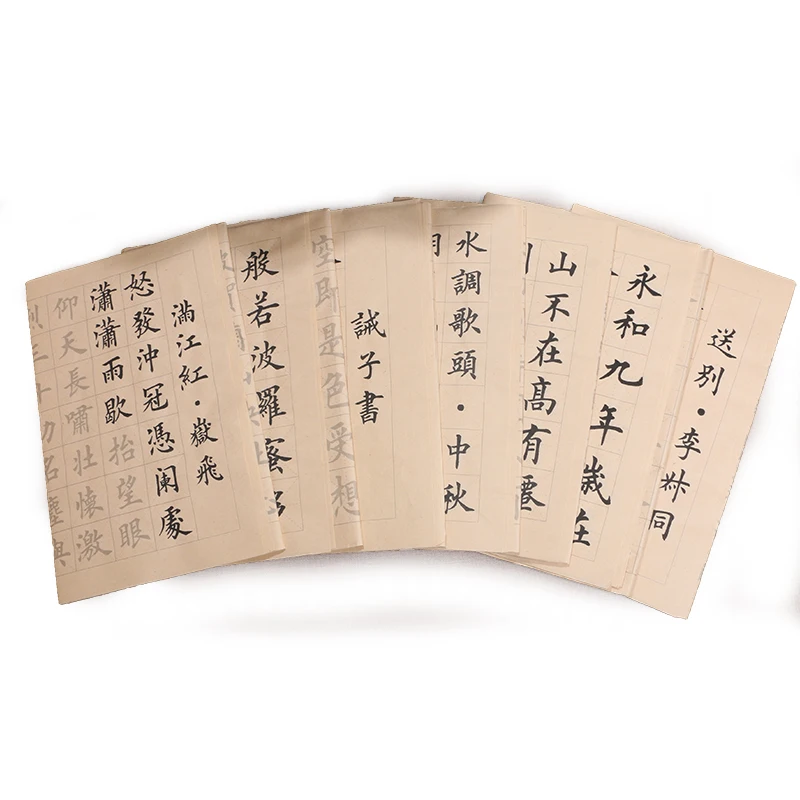 送別·李叔同
永和九年歲在
山不在髙有僊
水調歌頭·中秋
誡子書
空即是色受想
般若波羅蜜多
滿江紅·嶽飛
怒發沖冠憑闌處
瀟瀟雨歇抬望眼
仰天長嘯壯懷激
烈三十功名塵與